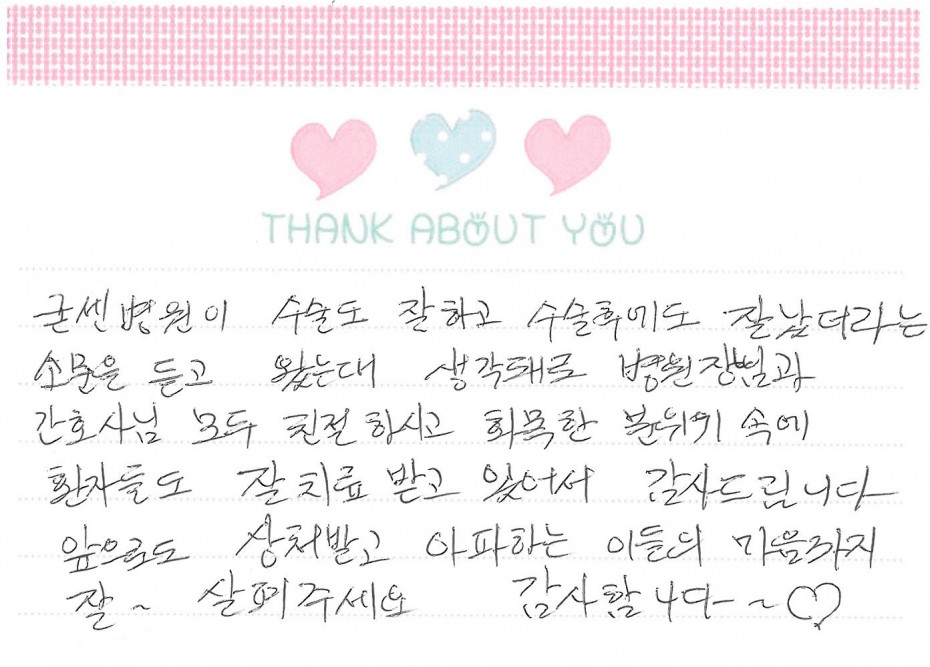 THANK ABOUT YOU
굳센병원이 수술도 잘하고 수술후에도 잘낳더라는
소문을 듣고 왔는대 생각돼로 병원장님과
간호사님 모두 친절하시고 화목한 분위기 속에
환자들도 잘 치료 받고 있어서 감사드립니다
앞으로도 상처받고 아파하는 이들의 마음까지
잘~ 살펴주세요 감사합니다~♡